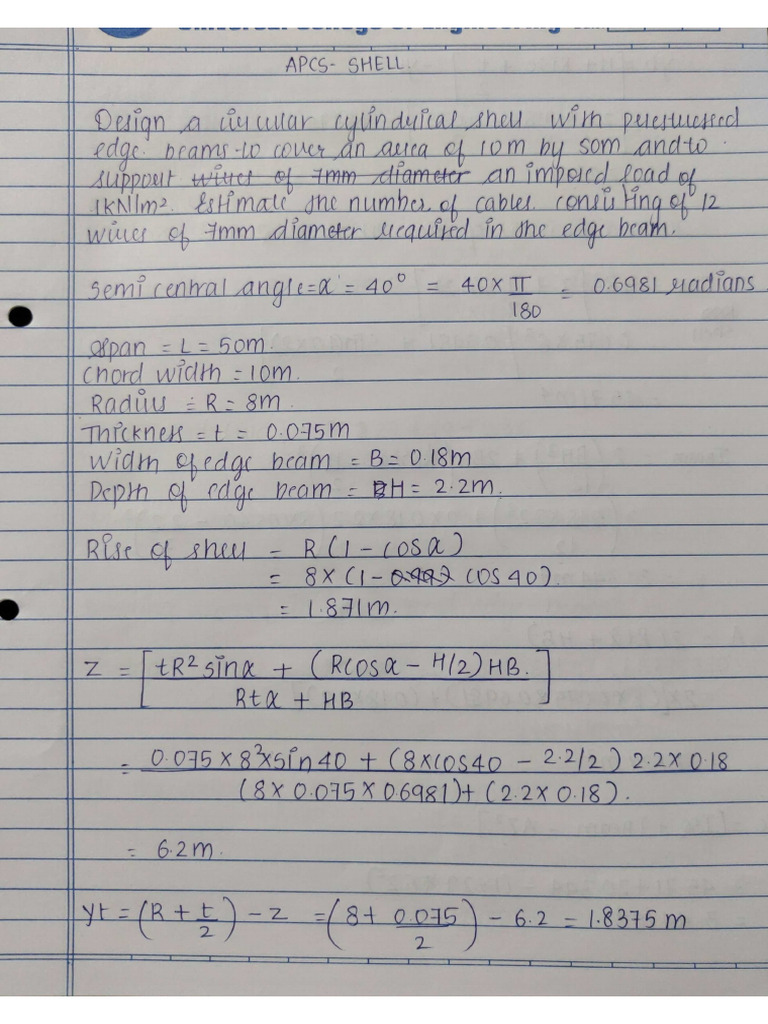 APCS- SHELL.
Design a circular cylindrical shell with prestressed
edge beams to cover an area of 10m by 50m and to
support wires of 7mm diameter an imposed load of
1kN/m². Estimate the number of cables consisting of 12
wires of 7mm diameter required in the edge beam.
Semi central angle = α = 40° = 40 × π/180 = 0.6981 radians
Span = L = 50m.
Chord width = 10m.
Radius = R = 8m.
Thickness = t = 0.075m
Width of edge beam = B = 0.18m
Depth of edge beam = H = 2.2m.
Rise of shell = R (1 - cosα)
= 8 × (1 - cos 40)
= 1.871m.
Z = [tR² sinα + (Rcosα - H/2) HB.
Rtα + HB]
= 0.075 × 8² × sin 40 + (8 × cos40 - 2.2/2) 2.2 × 0.18
(8 × 0.075 × 0.6981) + (2.2 × 0.18).
= 6.2m.
yt = (R + t/2) - z = (8 + 0.075/2) - 6.2 = 1.8375 m